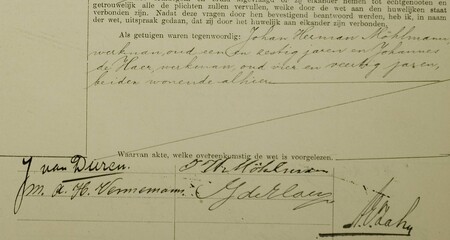 getrouwelijk alle de plichten zullen vervullen, welke door de wet aan den huwelijken staat
verbonden zijn. Nadat deze vragen door hen bevestigend beantwoord werden, heb ik, in naam
der wet, uitspraak gedaan, dat zij door het huwelijk aan elkander zijn verbonden.
Als getuigen waren tegenwoordig: Johan Herman Möhlmann
werkman, oud een en zestig jaren en Johannes
de Haer, werkman, oud vier en veertig jaren,
beiden wonende alhier.
Waarvan akte, welke overeenkomstig de wet is voorgelezen.
J van Duren. J. H. Möhlmann
M. A. H. Vennemann J de Haer